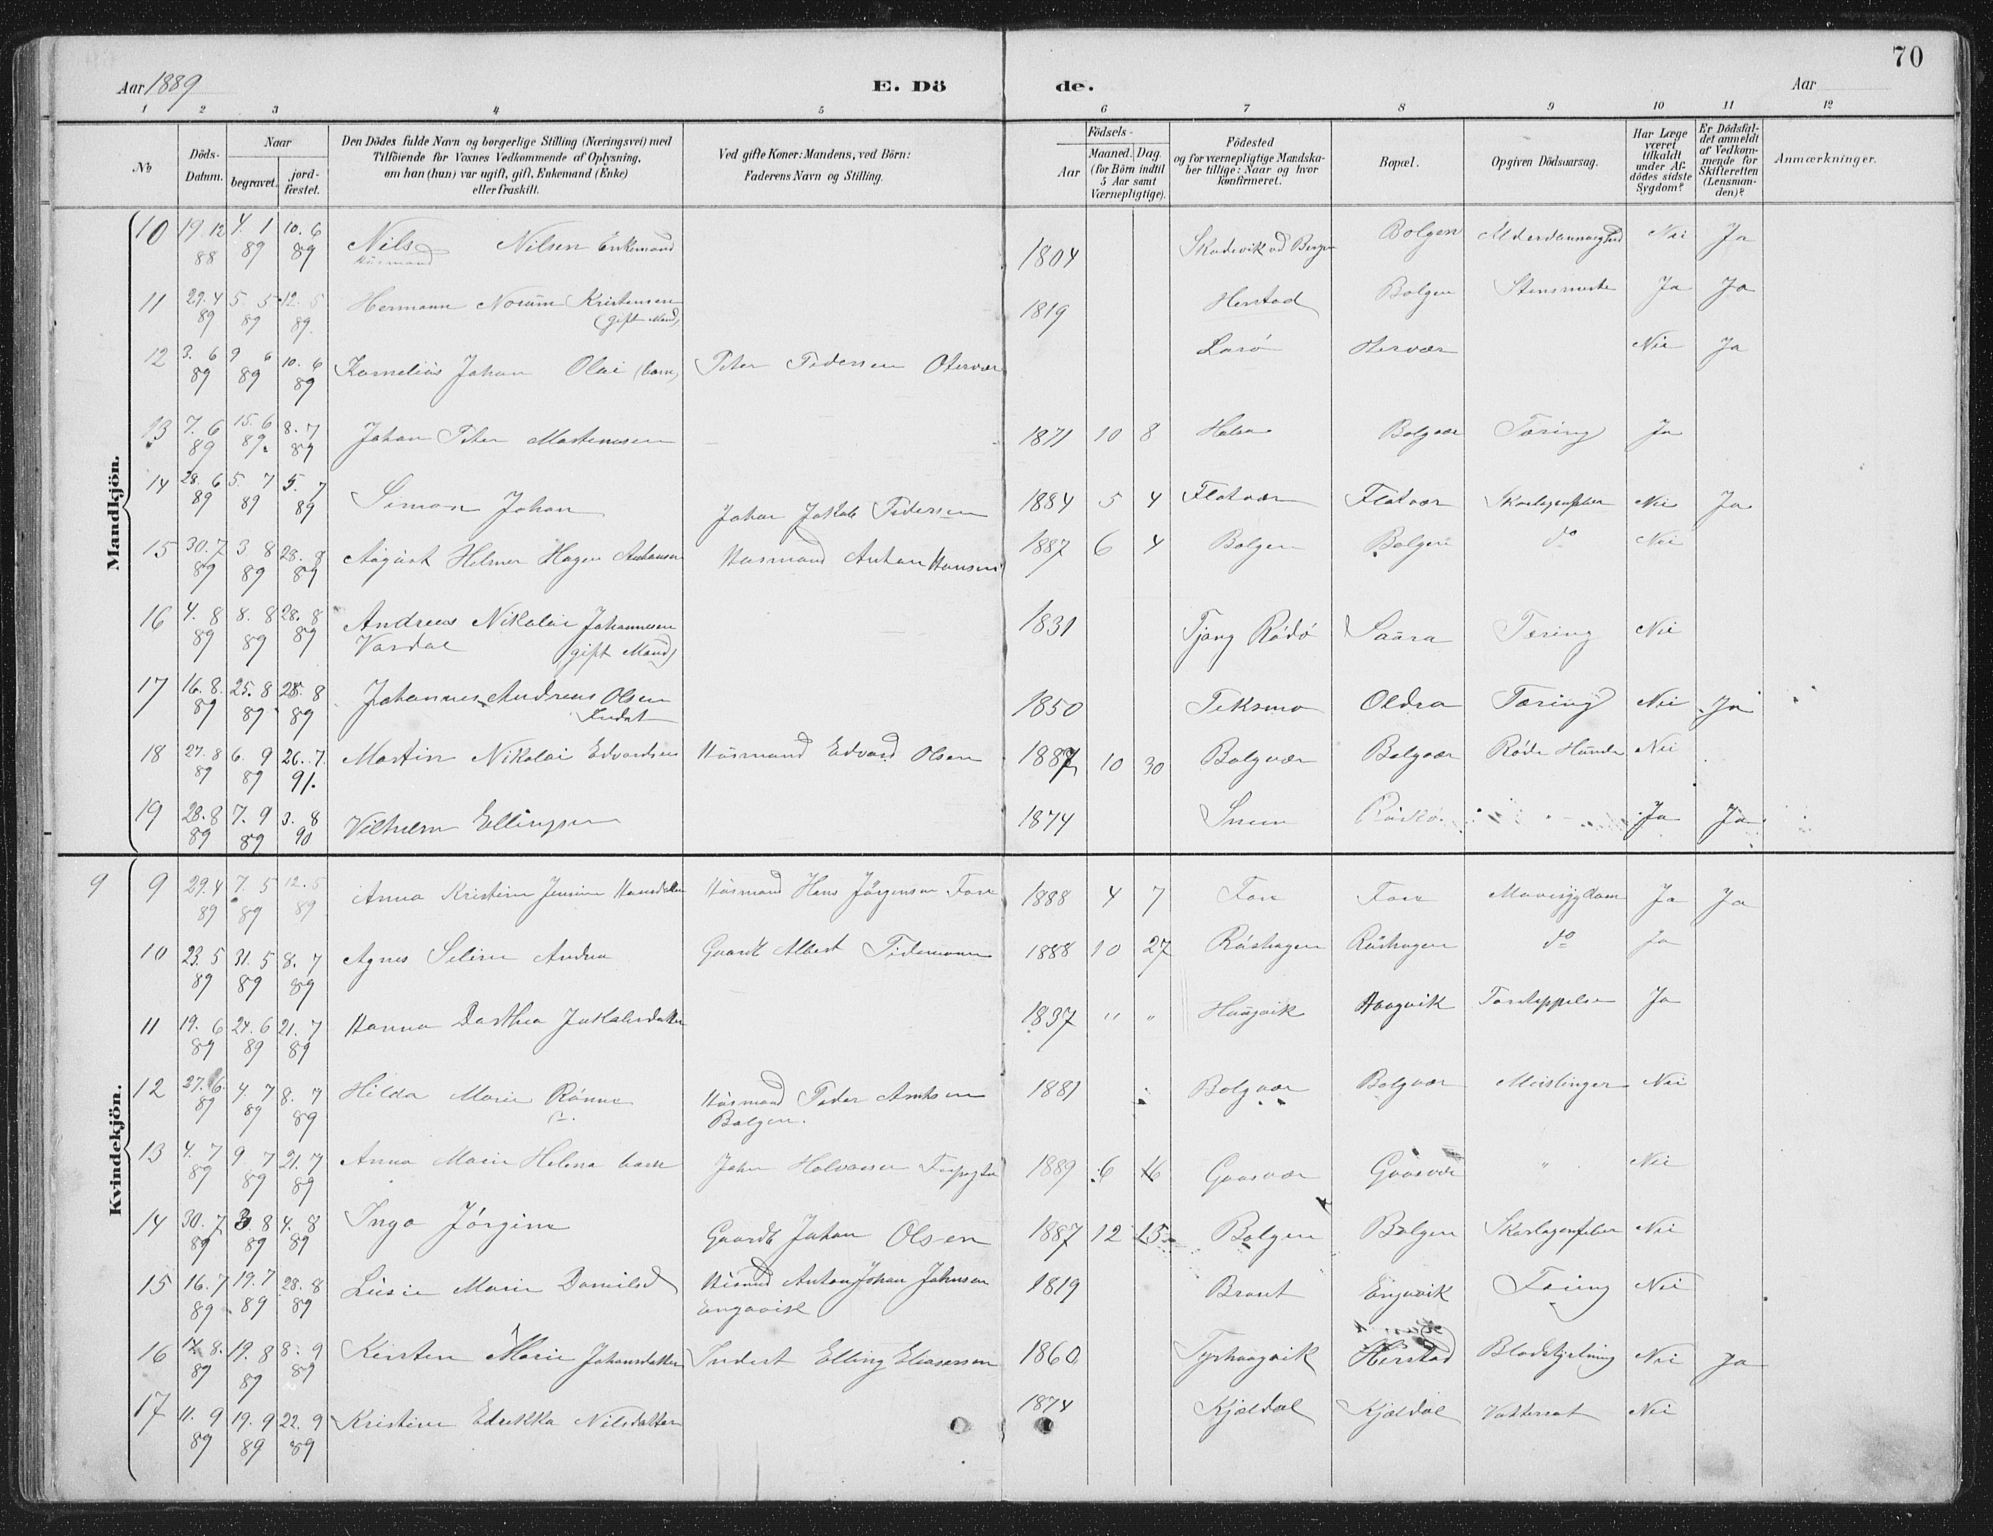 70
Aar 1889 E. Döde. Aar
1 2 3 4 5 6 7 8 9 10 11 12
No
Döds-Datum.
Naar
begravet.
jord-fæstet.
Den Dödes fulde Navn og borgerlige Stilling (Næringsvei) med
Tilföiende for Voxnes Vedkommende af Oplysning,
om han (hun) var ugift, gift, Enkemand (Enke)
eller fraskilt.
Ved gifte Koner: Mandens, ved Börn:
Faderens Navn og Stilling.
Födsels-
Aar
Maaned. Dag.
(for Börn indtil
5 Aar samt
Værnepligtige).
Födested
og for værnepligtige Mandska-
ber tillige: Naar og hvor
konfirmeret.
Bopæl.
Opgiven Dödsaarsag.
Har Læge
været
tilkaldt
under Af-
dödes sidste
Sygdom?
Er Dödsfal-
det anmeldt
af Vedkom-
mende for
Skifteretten
(Lensman-
den)?
Anmærkninger.
Mandkjön.
10 19.12 88 4.1 89 10.6 89 Nils Nilsen Enkemand Husmand 1804 Bolgen Nei Ja
11 29.4 89 5.5 89 12.5 89 Hermann Norum Kristensen (gift Mand) 1819 Herstad Bolgen Ja Ja
12 3.6 89 9.6 89 10.6 89 Kornelius Johan Olai (barn) Peter Pedersen Otervær Nei Ja
13 7.6 89 15.6 89. 8.7 89 Johan Peter Martinussen 1871 10 8 Bolgvær Tæring Ja
14 28.6 89 5.7 89 5.7 89 Simon Johan Johan Jakob Pedersen 1884 5 4 Flatvær Flatvær Skarlagensfeber Nei Ja
15 30.7 89 3 8 89 28.8 89 August Helmer Hagen Antonsen Husmand Anton Hansen 1887 6 4 Bolgen Bolgen do Nei
16 4.8 89 8.8 89 28.8 89 Andreas Nikolai Johannesen Vardal (gift Mand) 1831 Tjong Rödö Saura Tæring Nei
17 16.8. 89 25.8 89 28.8 89 Johannes Andreas Olsen Inderst 1850 Teksmo Oldra Tæring Nei Ja
18 27.8 89 6.9 89 26.7. 91. Martin Nikolai Edvardsen Husmand Edvard Olsen 1887 10 30 Bolgvær Bolgvær Röde Hunde Nei
19 28.8 89 7.9 89 3.8 90 Vilhelm Ellingsen 1874 Ja Ja
Kvindekjön.
9 9 29.4 89 7.5 89 12.5 89 Anna Kristine Jensine Hansdatter Husmand Hans Jörgensen Fore 1888 4 7 Fore Fore Mavesygdom Ja Ja
10 23.5 89 31.5 89 8.7 89 Agnes Seline Andrea Gaardb. Albert Pedersen 1888 10 27 Röshagen Röshagen do Ja
11 19.6 89 24.6 89 21.7 89 Hanna Dorthea Jakobsdatter 1837 " " Haugvik Haugvik Ja
12 27.6. 89 4.7 89 8.7 89 Hilda Marie Rönne Husmand Peder Bolgen. 1881 Bolgvær Bolgvær Meislinger Nei
13 4.7 89 9 7 89 21.7 89 Anna Marie Helena barn 1889 6 16 Gaasvær Gaasvær " Nei
14 30.7 89 3.8 89 4.8 89 Inga Jörgine Gaardb Johan Olsen 1887 12 15 Bolgen Bolgen Skarlagensfeber Nei
15 16.7 89 19.7 89 28.8 89 Lusie Marie Danielsd Husmd Anton Johan Johnsen Engavik 1819 Engavik Tæring Nei
16 12.8. 89 19.8 89 8.9 89 Kirsten Marie Johansdatter Inderst Elling Eliassen 1860 Herstad Blodstyrtning Nei Ja
17 11.9 89 19.9 89 22.9 89 Kristine Edrikka Nilsdatter 1874 Kjældal Kjældal Vattersot Nei